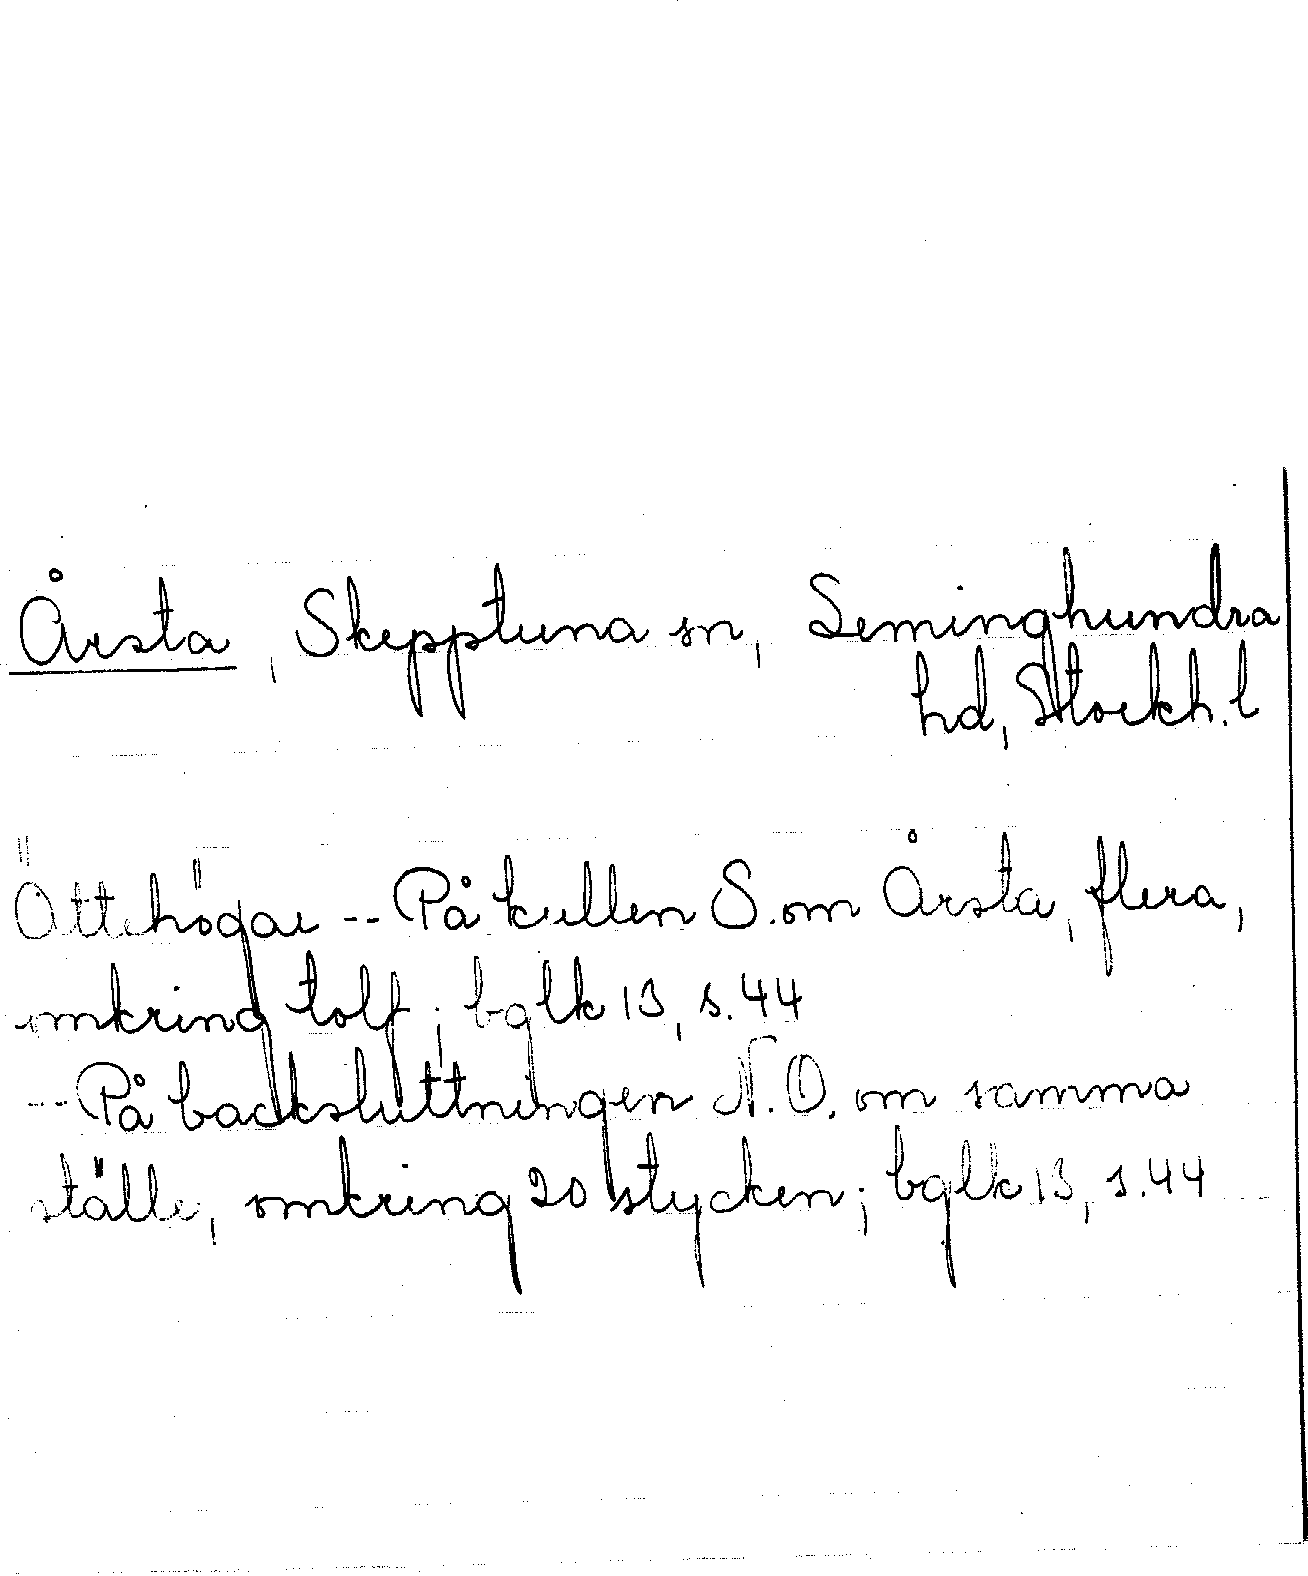 Årsta, Skepptuna sn, Seminghundra
hd, Stockh. l
Ättehögar -- På kullen S. om Årsta, flera,
omkring tolf; bglk 13, s. 44
-- På backsluttningen N.O. om samma
ställe, omkring 20 stycken; bglk 13, s. 44